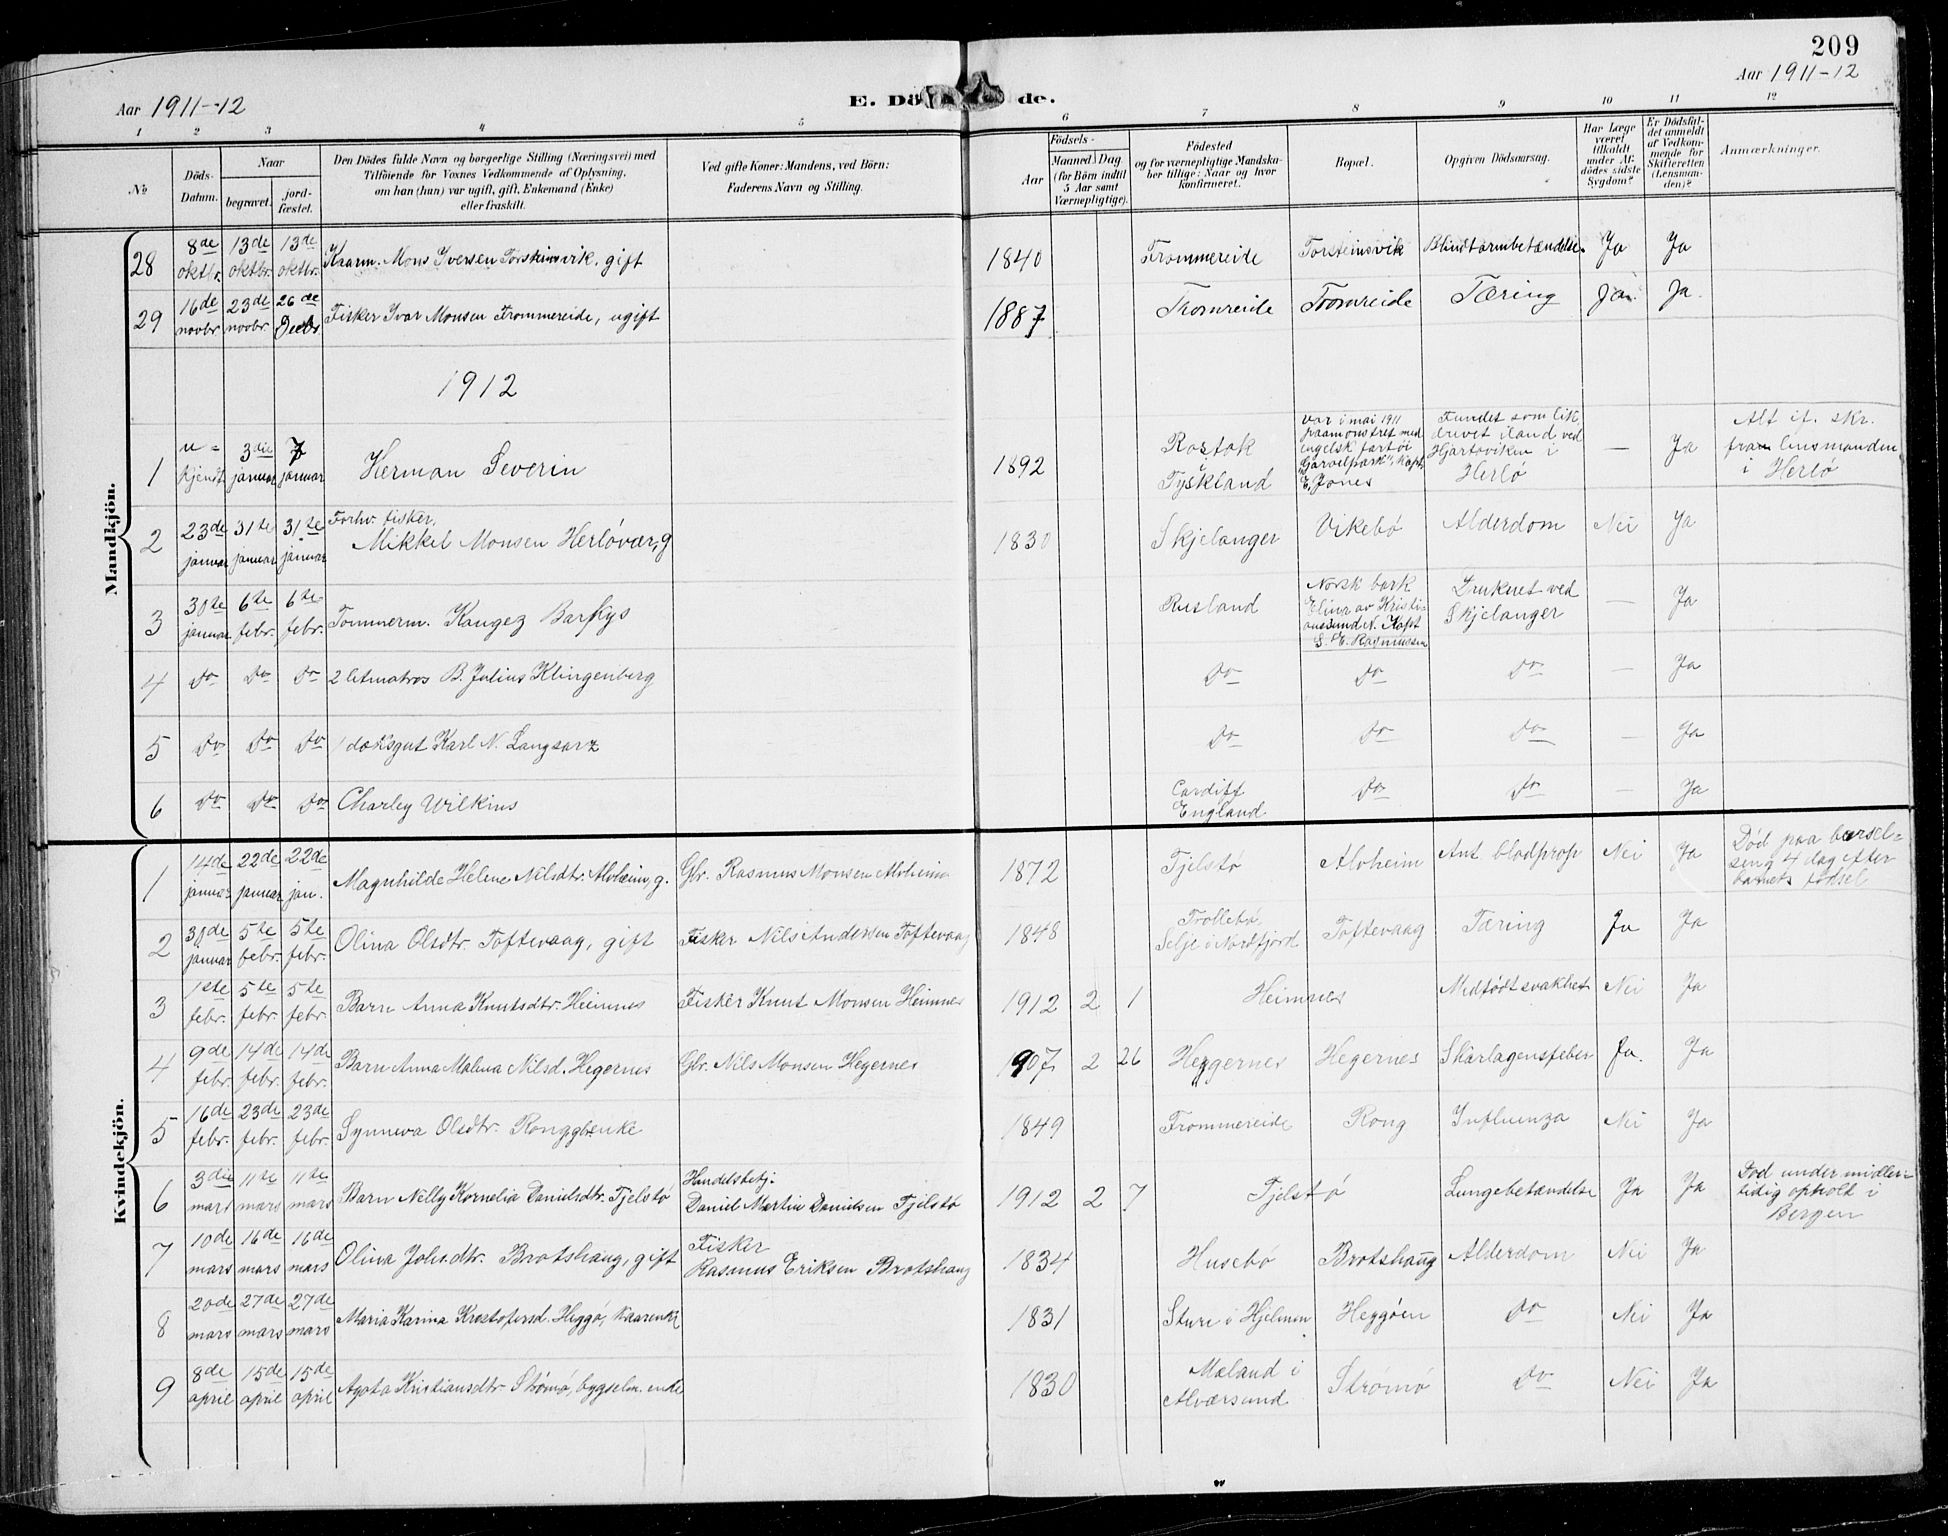 209
Aar 1911-12
Aar 1911-12
E. Dö de.
1 2 3 4 5 6 7 8 9 10 11 12
No
Döds-Datum.
Naar
begravet.
jord-fæstet.
Den Dödes fulde Navn og borgerlige Stilling (Næringsvei) med
Tilföiende for Voxnes Vedkommende af Oplysning,
om han (hun) var ugift, gift, Enkemand (Enke)
eller fraskilt.
Ved gifte Koner: Mandens, ved Börn:
Faderens Navn og Stilling.
Födsels-
Aar
Maaned Dag
(for Börn indtil
5 Aar samt
Værnepligtige).
Födested
og for værnepligtige Mandska-
ber tillige: Naar og hvor
konfirmeret.
Bopæl.
Opgiven Dödsaarsag.
Har Læge
været
tilkaldt
under Af-
dödes sidste
Sygdom?
Er Dödsfal-
det anmeldt
af Vedkom-
mende for
Skifteretten
(Lensman-
den)?
Anmærkninger.
Mandkjön.
28 8de oktbr. 13de oktbr. 13de oktbr. Kaarm. Mons Iversen Torsteinsvik, gift 1840 Frommereide Torsteinsvik Blindtarmbetændelse Ja Ja
29 16de novbr. 23de novbr. 26de Decbr. Fisker Ivar Monsen Frommereide, ugift 1887 Fromreide Fromreide Tæring Ja Ja.
1912
1 u-kjendt 3die januar 7 januar Herman Severin 1892 Rostok i Tyskland
var i mai 1911
paamønstret med
engelsk fartøi
kapt.
E. Jones
Fundet som lik
drevet iland ved
Hjartøviken i
Herlø
— Ja
Alt if. skr.
fra lensmanden
i Herlø
2 23de januar 31te januar 31te januar Forhv. fisker.
Mikkel Monsen Herløvær, g 1830 Skjelanger Vikebø Alderdom Nei Ja
3 30te januar 6te febr. 6te febr. Tømmerm. Kangez Barfkys Rusland
Norsk bark
Elina av Kristi-
anssund N. Kapt
S. E. Rasmussen
Druknet ved
Skjelanger
— Ja
4 Do Do Do 2 letmatros B. Julius Klingenberg Do Do Do — Ja
5 Do Do Do 1 dæksgut Karl N. Langsarz Do Do Do — Ja
6 Do Do Do Charley Wilkins Cardiff England Do Do — Ja
Kvindekjön.
1 14de januar 22de januar 22de jan. Magnhilde Helene Nilsdtr. Alvheim, g. Gbr. Rasmus Monsen Alvheim 1872 Fjelstø Alvheim Ant. blodprop Nei Ja
Død paa barsel-
seng 4 dag efter
barnets fødsel
2 30de januar 5te febr. 5te febr. Olina Olsdtr. Toftevaag, gift Fisker Nils Andersen Toftevaag 1848 Trollebø, Selje i Nordfjord Toftevaag Tæring Ja Ja
3 1ste febr. 5te febr. 5te febr. Barn Anna Knutsdtr. Heimnes Fisker Knut Monsen Heimnes 1912 2 1 Heimnes Medfødt svakhet Nei Ja
4 9de febr. 14de febr. 14de febr. Barn Anna Malena Nilsd. Hegernes Gbr. Nils Monsen Hegernes 1907 2 26 Heggernes Hegernes Skarlagensfeber Ja. Ja
5 16de febr. 23de febr. 23de febr. Synneva Olsdtr. Rong gbrenke 1849 Frommereide Rong Influenza Nei Ja
6 3die mars 11te mars 11te mars Barn Nelly Kornelia Danielsdtr. Fjelstø Handelsbetj.
Daniel Martin Danielsen Fjelstø 1912 2 7 Fjelstø Lungebetændelse Ja Ja
Død under midler-
tidig ophold i
Bergen
7 10de mars 16de mars 16de mars Olina Johsdtr. Brotshaug, gift Fisker
Rasmus Eriksen Brotshaug 1834 Husebø Brotshaug Alderdom Nei Ja
8 20de mars 27de mars 27de mars Maria Karina Kristofersd. Heggø, kaarenke 1831 Sture i Hjelmen Heggøen Do Nei Ja
9 8de april 15de april 15de april Agata Kristiansdtr. Strømø, bygselm. enke 1830 Mæland i Alværsund Strømø Do Nei Ja